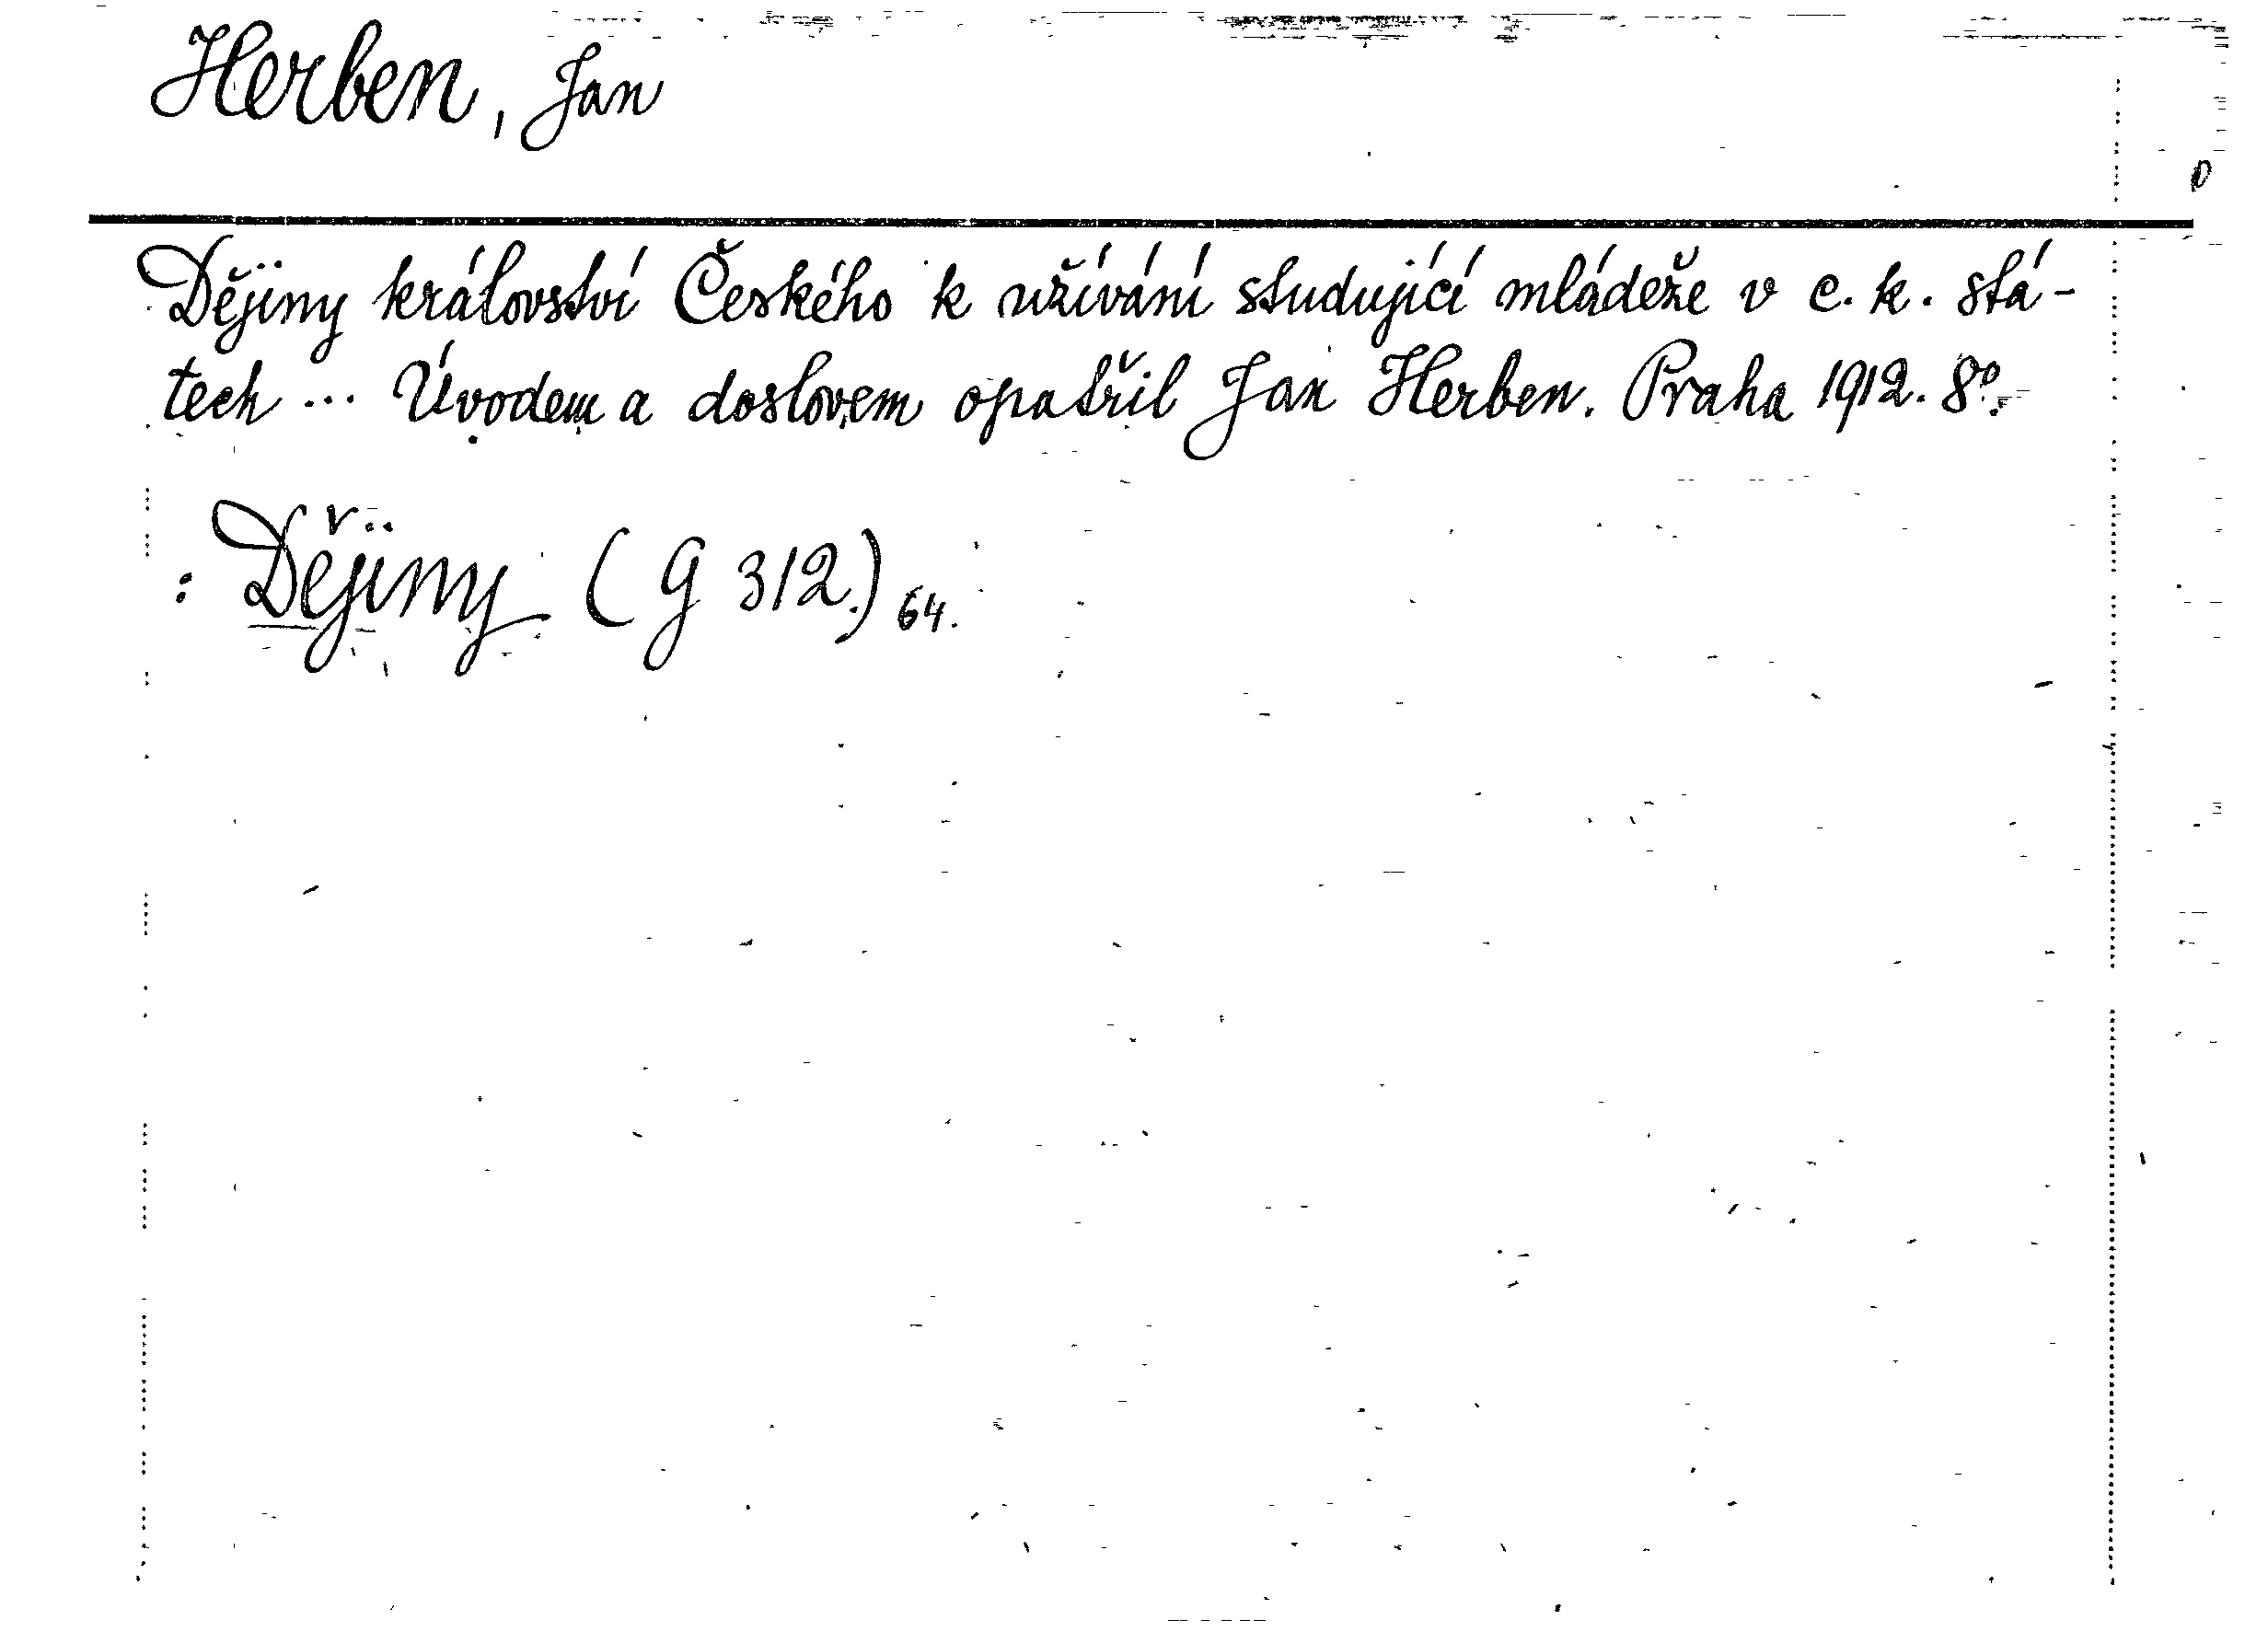 Herben, Jan
Dějiny království Českého k užívání studující mládeže v c. k. stá-
tech ... Úvodem a doslovem opatřil Jan Herben. Praha 1912. 8°.
: Dějiny (G 312.) 64.